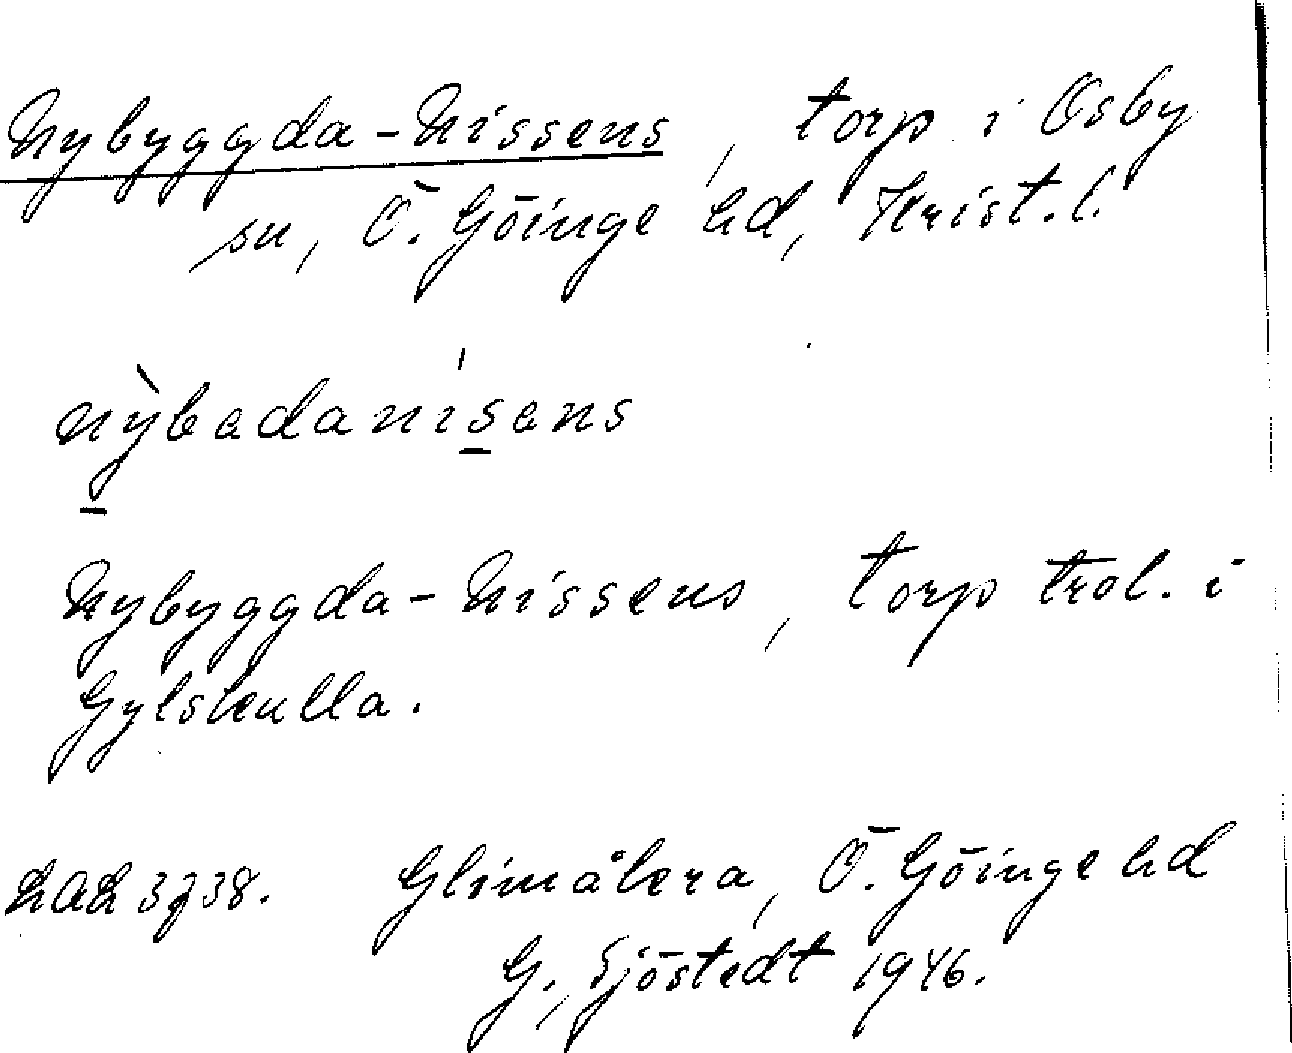 Nybyggda-Nissens, torp i Osby
sn, Ö. Göinge hd, Krist. l.
nỳbadanísans
Nybyggda-Nissens, torp trol. i
Gylskulla.
LAL 3738. Glimåkra, Ö. Göinge hd
G. Sjöstedt 1946.